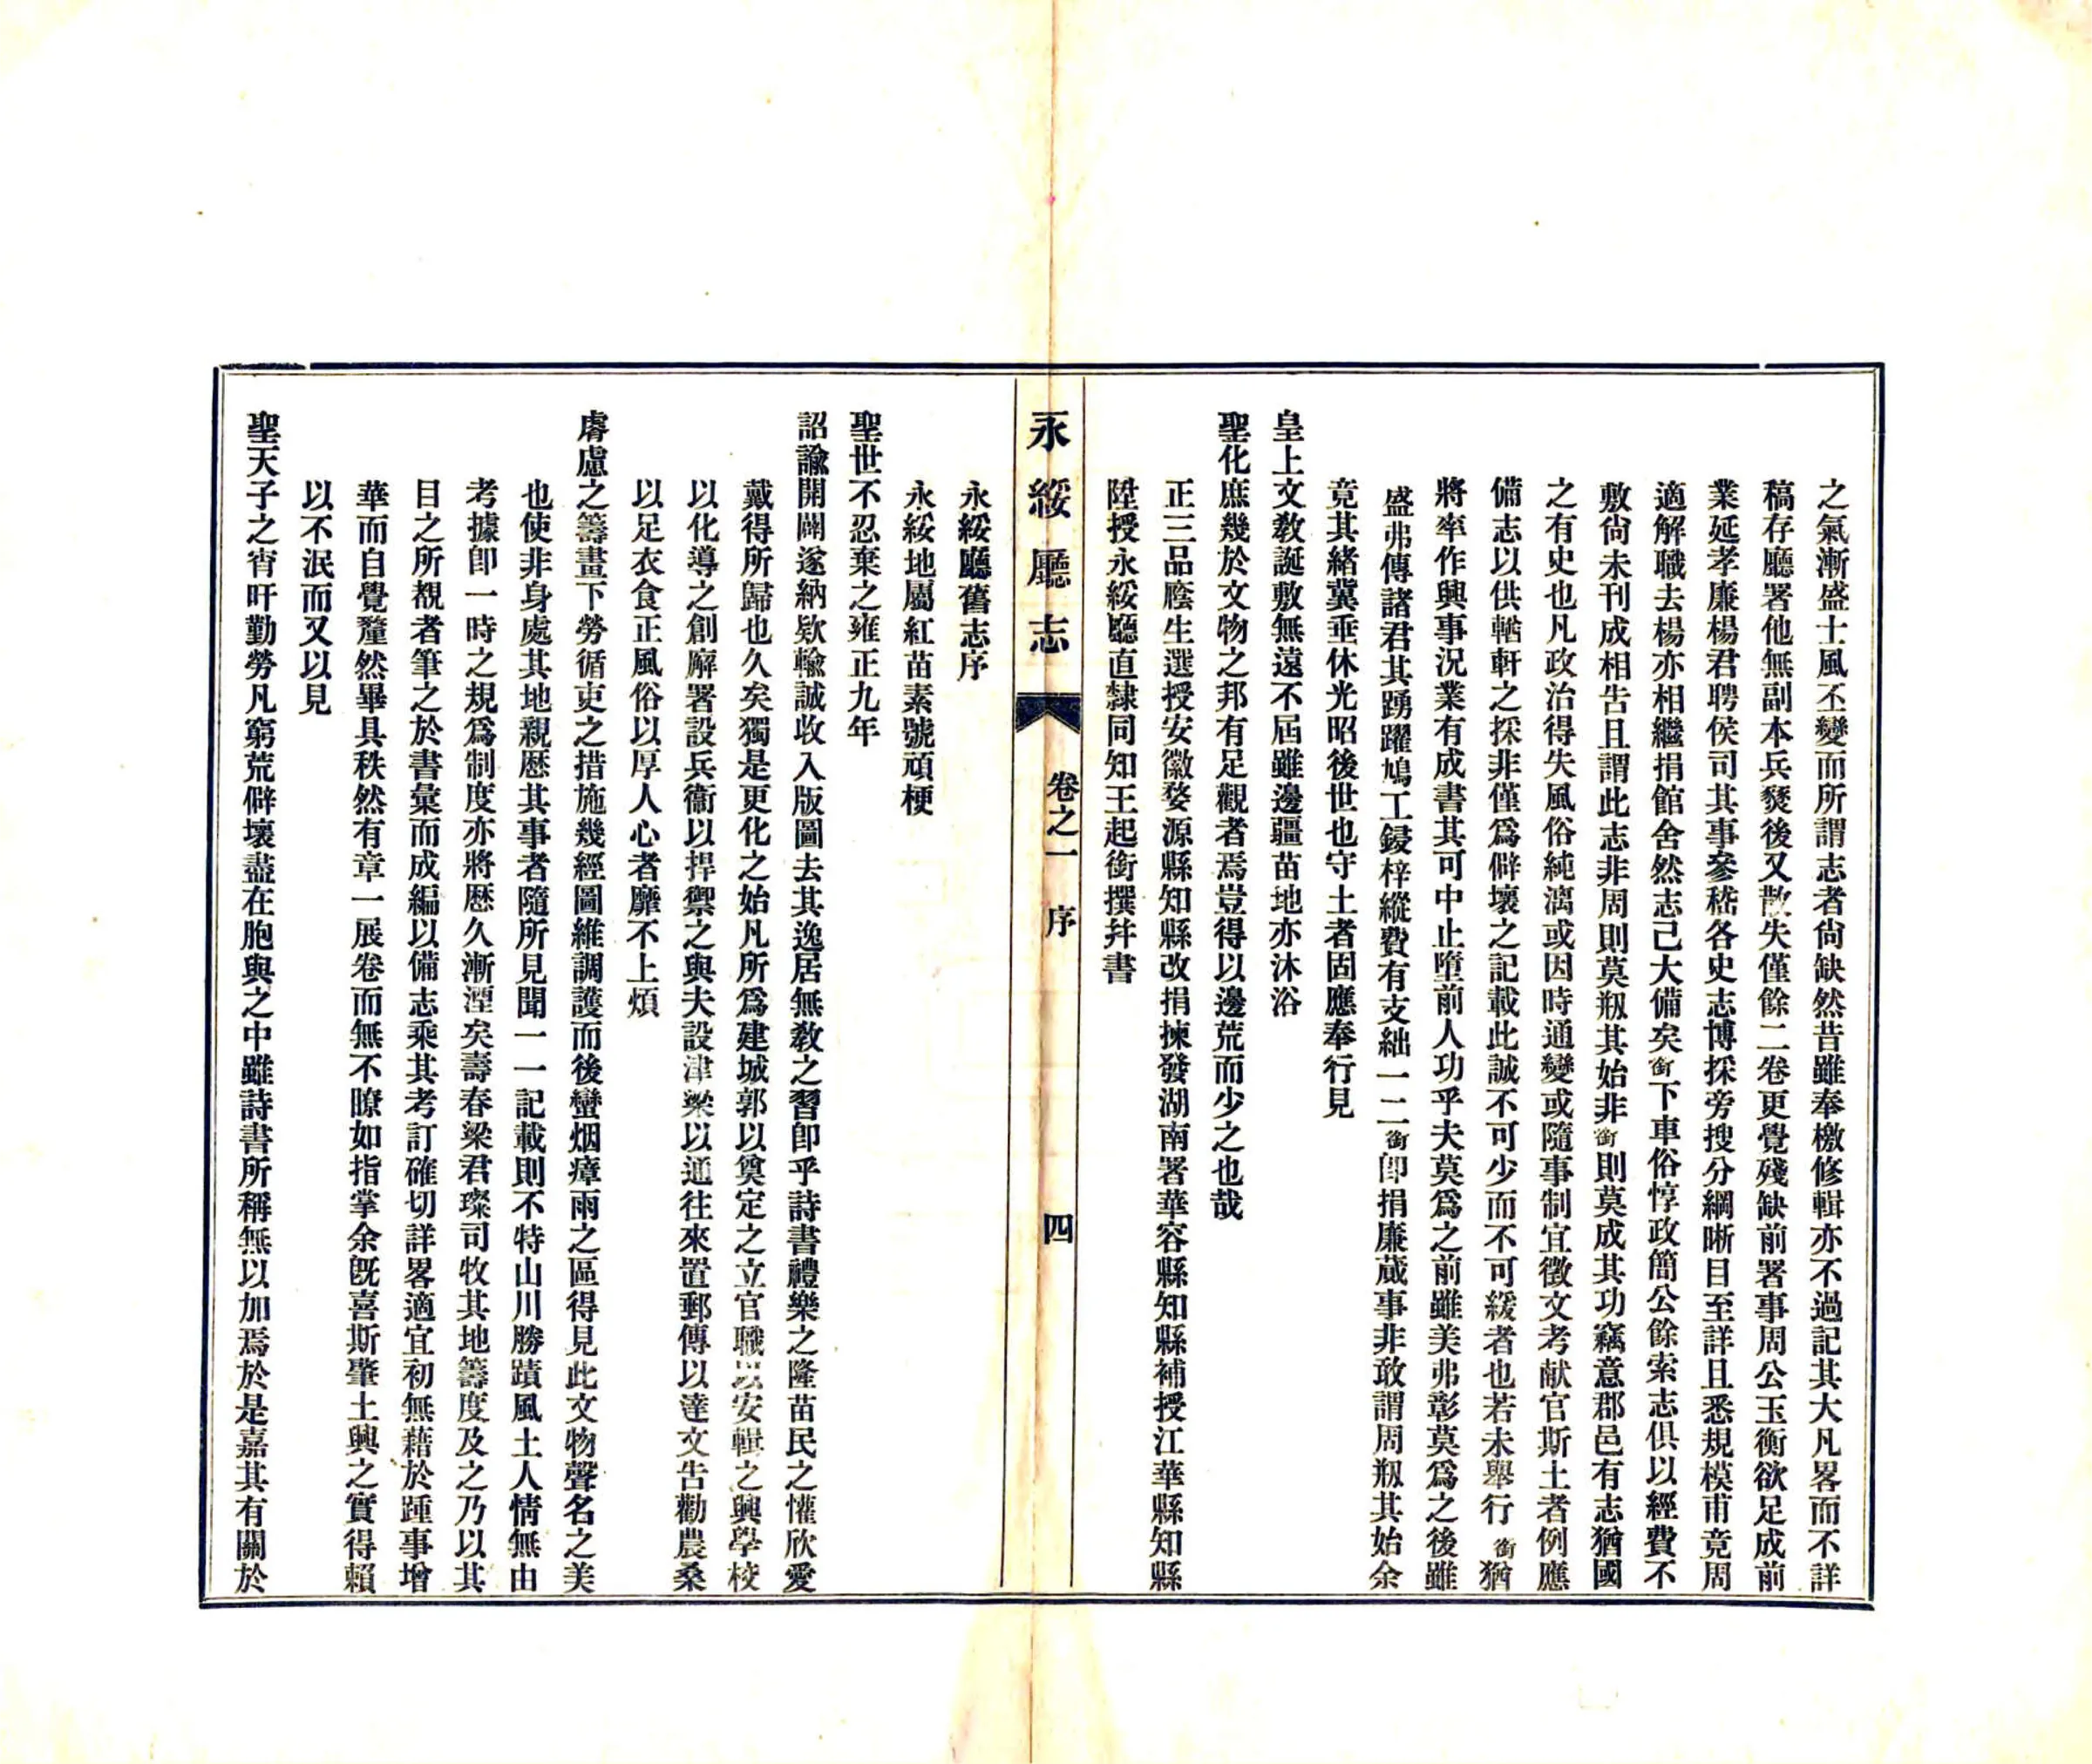 之氣漸盛士風丕變而所謂志者尙缺然昔雖奉檄修輯亦不過記其大凡畧而不詳
稿存廳署他無副本兵燹後又散失僅餘二卷更覺殘缺前署事周公玉衡欲足成前
業延孝廉楊君聘侯司其事參嵇各史志博採旁搜分綱晰目至詳且悉規模甫竟周
適解職去楊亦相繼捐館舍然志己大備矣銜下車俗惇政簡公餘索志俱以經費不
敷尙未刊成相告且謂此志非周則莫剏其始非銜則莫成其功竊意郡邑有志猶國
之有史也凡政治得失風俗純漓或因時通變或隨事制宜徵文考献官斯土者例應
備志以供輶軒之採非僅爲僻壤之記載此誠不可少而不可緩者也若未舉行銜猶
將率作興事況業有成書其可中止墮前人功乎夫莫爲之前雖美弗彰莫爲之後雖
盛弗傳諸君其踴躍鳩工鋟梓縱費有支絀一二銜卽捐廉蕆事非敢謂周剏其始余
竟其緒冀垂休光昭後世也守土者固應奉行見
皇上文敎誕敷無遠不屆雖邊疆苗地亦沐浴
聖化庶幾於文物之邦有足觀者焉豈得以邊荒而少之也哉
正三品廕生選授安徽婺源縣知縣改捐揀發湖南署華容縣知縣補授江華縣知縣
陞授永綏廳直隸同知王起銜撰幷書
永綏廳志　卷之一　序　四
永綏廳舊志序
永綏地屬紅苗素號頑梗
聖世不忍棄之雍正九年
詔諭開闢遂納欵輸誠收入版圖去其逸居無敎之習卽乎詩書禮樂之隆苗民之懽欣愛
戴得所歸也久矣獨是更化之始凡所爲建城郭以奠定之立官職以安輯之興學校
以化導之創廨署設兵衞以捍禦之與夫設津梁以通往來置郵傳以達文告勸農桑
以足衣食正風俗以厚人心者靡不上煩
睿慮之籌畫下勞循吏之措施幾經圖維調護而後蠻烟瘴雨之區得見此文物聲名之美
也使非身處其地親歷其事者隨所見聞一一記載則不特山川勝蹟風土人情無由
考據卽一時之規爲制度亦將歷久漸湮矣壽春梁君璨司牧其地籌度及之乃以其
目之所覩者筆之於書彙而成編以備志乘其考訂確切詳畧適宜初無藉於踵事增
華而自覺釐然畢具秩然有章一展卷而無不瞭如指掌余旣喜斯肇土興之實得賴
以不泯而又以見
聖天子之宵旰勤勞凡窮荒僻壤盡在胞與之中雖詩書所稱無以加焉於是嘉其有關於